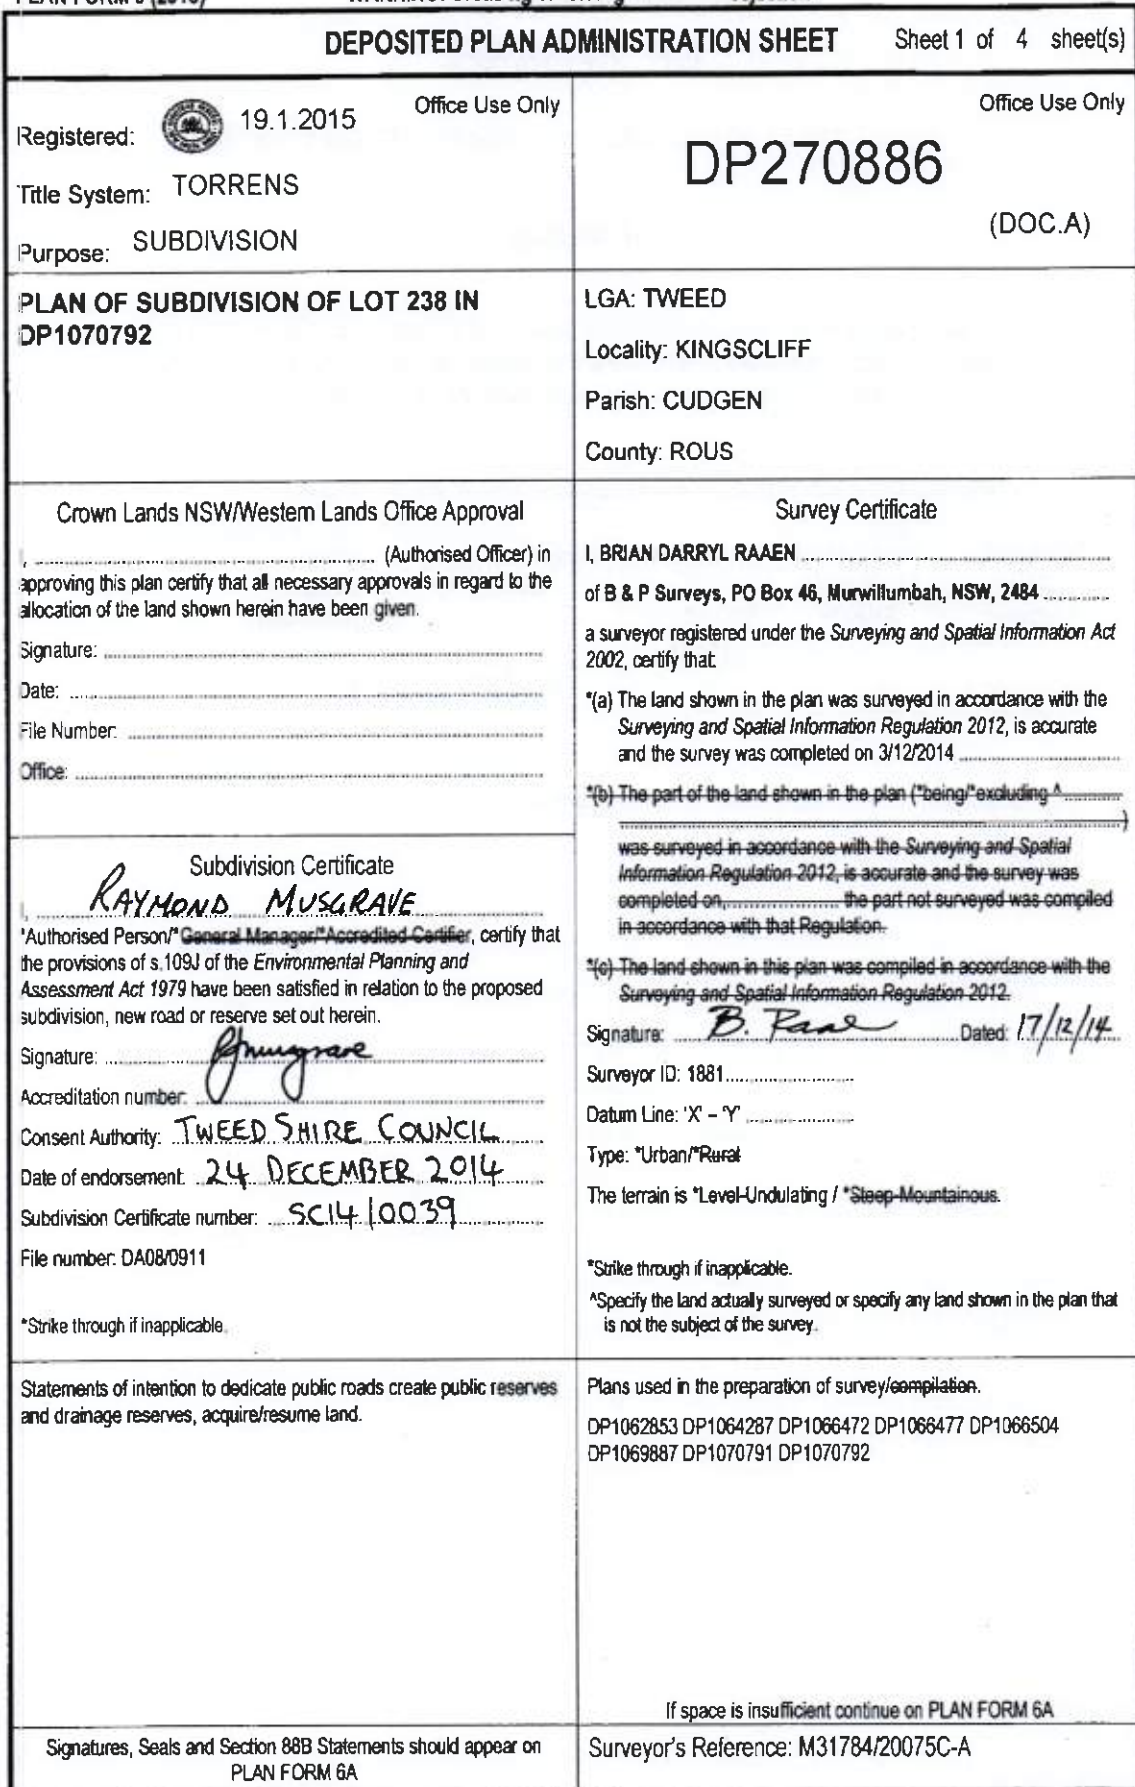 DEPOSITED PLAN ADMINISTRATION SHEET Sheet 1 of 4 sheet(s)
Office Use Only
Registered: 19.1.2015
Title System: TORRENS
Purpose: SUBDIVISION
Office Use Only
DP270886
(DOC.A)
PLAN OF SUBDIVISION OF LOT 238 IN
DP1070792
LGA: TWEED
Locality: KINGSCLIFF
Parish: CUDGEN
County: ROUS
Crown Lands NSW/Western Lands Office Approval
I, .......... (Authorised Officer) in
approving this plan certify that all necessary approvals in regard to the
allocation of the land shown herein have been given.
Signature: ..........
Date: ..........
File Number: ..........
Office: ..........
Subdivision Certificate
I, RAYMOND MUSGRAVE
*Authorised Person/*General Manager/*Accredited Certifier, certify that
the provisions of s.109J of the Environmental Planning and
Assessment Act 1979 have been satisfied in relation to the proposed
subdivision, new road or reserve set out herein.
Signature: RJmusgrave
Accreditation number: ..........
Consent Authority: TWEED SHIRE COUNCIL
Date of endorsement: 24 DECEMBER 2014
Subdivision Certificate number: SC14/0039
File number: DA08/0911
*Strike through if inapplicable.
Survey Certificate
I, BRIAN DARRYL RAAEN ..........
of B & P Surveys, PO Box 46, Murwillumbah, NSW, 2484 ..........
a surveyor registered under the Surveying and Spatial Information Act
2002, certify that:
*(a) The land shown in the plan was surveyed in accordance with the
Surveying and Spatial Information Regulation 2012, is accurate
and the survey was completed on 3/12/2014 ..........
*(b) The part of the land shown in the plan (*being/*excluding ^..........
..........)
was surveyed in accordance with the Surveying and Spatial
Information Regulation 2012, is accurate and the survey was
completed on,.......... the part not surveyed was compiled
in accordance with that Regulation.
*(c) The land shown in this plan was compiled in accordance with the
Surveying and Spatial Information Regulation 2012.
Signature: B. Raae Dated: 17/12/14
Surveyor ID: 1881..........
Datum Line: 'X' – 'Y' ..........
Type: *Urban/*Rural
The terrain is *Level-Undulating / *Steep-Mountainous.
*Strike through if inapplicable.
^Specify the land actually surveyed or specify any land shown in the plan that
is not the subject of the survey.
Statements of intention to dedicate public roads create public reserves
and drainage reserves, acquire/resume land.
Plans used in the preparation of survey/compilation.
DP1062853 DP1064287 DP1066472 DP1066477 DP1066504
DP1069887 DP1070791 DP1070792
If space is insufficient continue on PLAN FORM 6A
Signatures, Seals and Section 88B Statements should appear on
PLAN FORM 6A
Surveyor's Reference: M31784/20075C-A